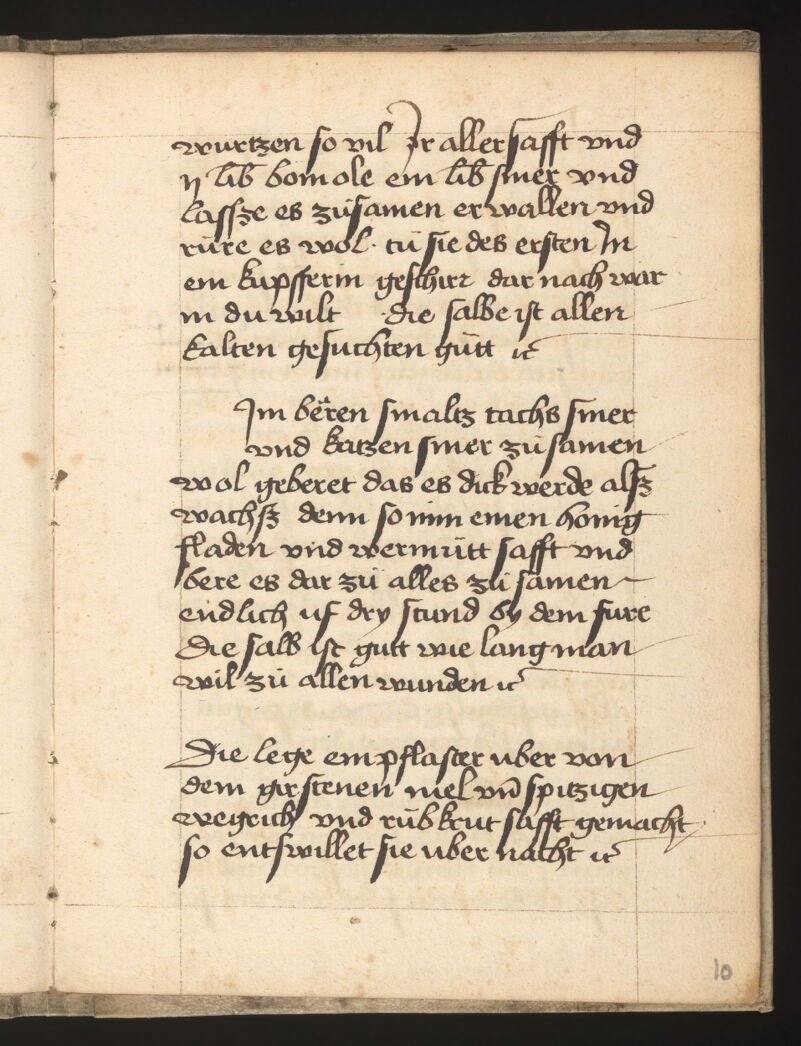 wurtzen so vil Jr aller safft vnd
ij lib bomole ein lib smer vnd
lassze es zůsamen erwallen vnd
rüre es wol · tů sie des ersten Jn
ein kupfferin geschirr dar nach war
in du wilt · die salbe ist allen
kalten gesuchten gůtt ıc
Jm beren smaltz tachs smer
vnd katzen smer zů samen
wol geberet das es dick werde alsz
wachsz denn so nim einen honig
fladen vnd wermůtt safft vnd
bere es dar zů alles zů samen
endlich uf dry stund by dem fure
Die salb ist gutt wie lang man
wil zů allen wunden ıc
Die lege ein pflaster uber von
dem girstenen mel vn̄ spitzigen
wegrich vnd růbkrut safft gemacht
so entswillet sie uber nacht ıc
10